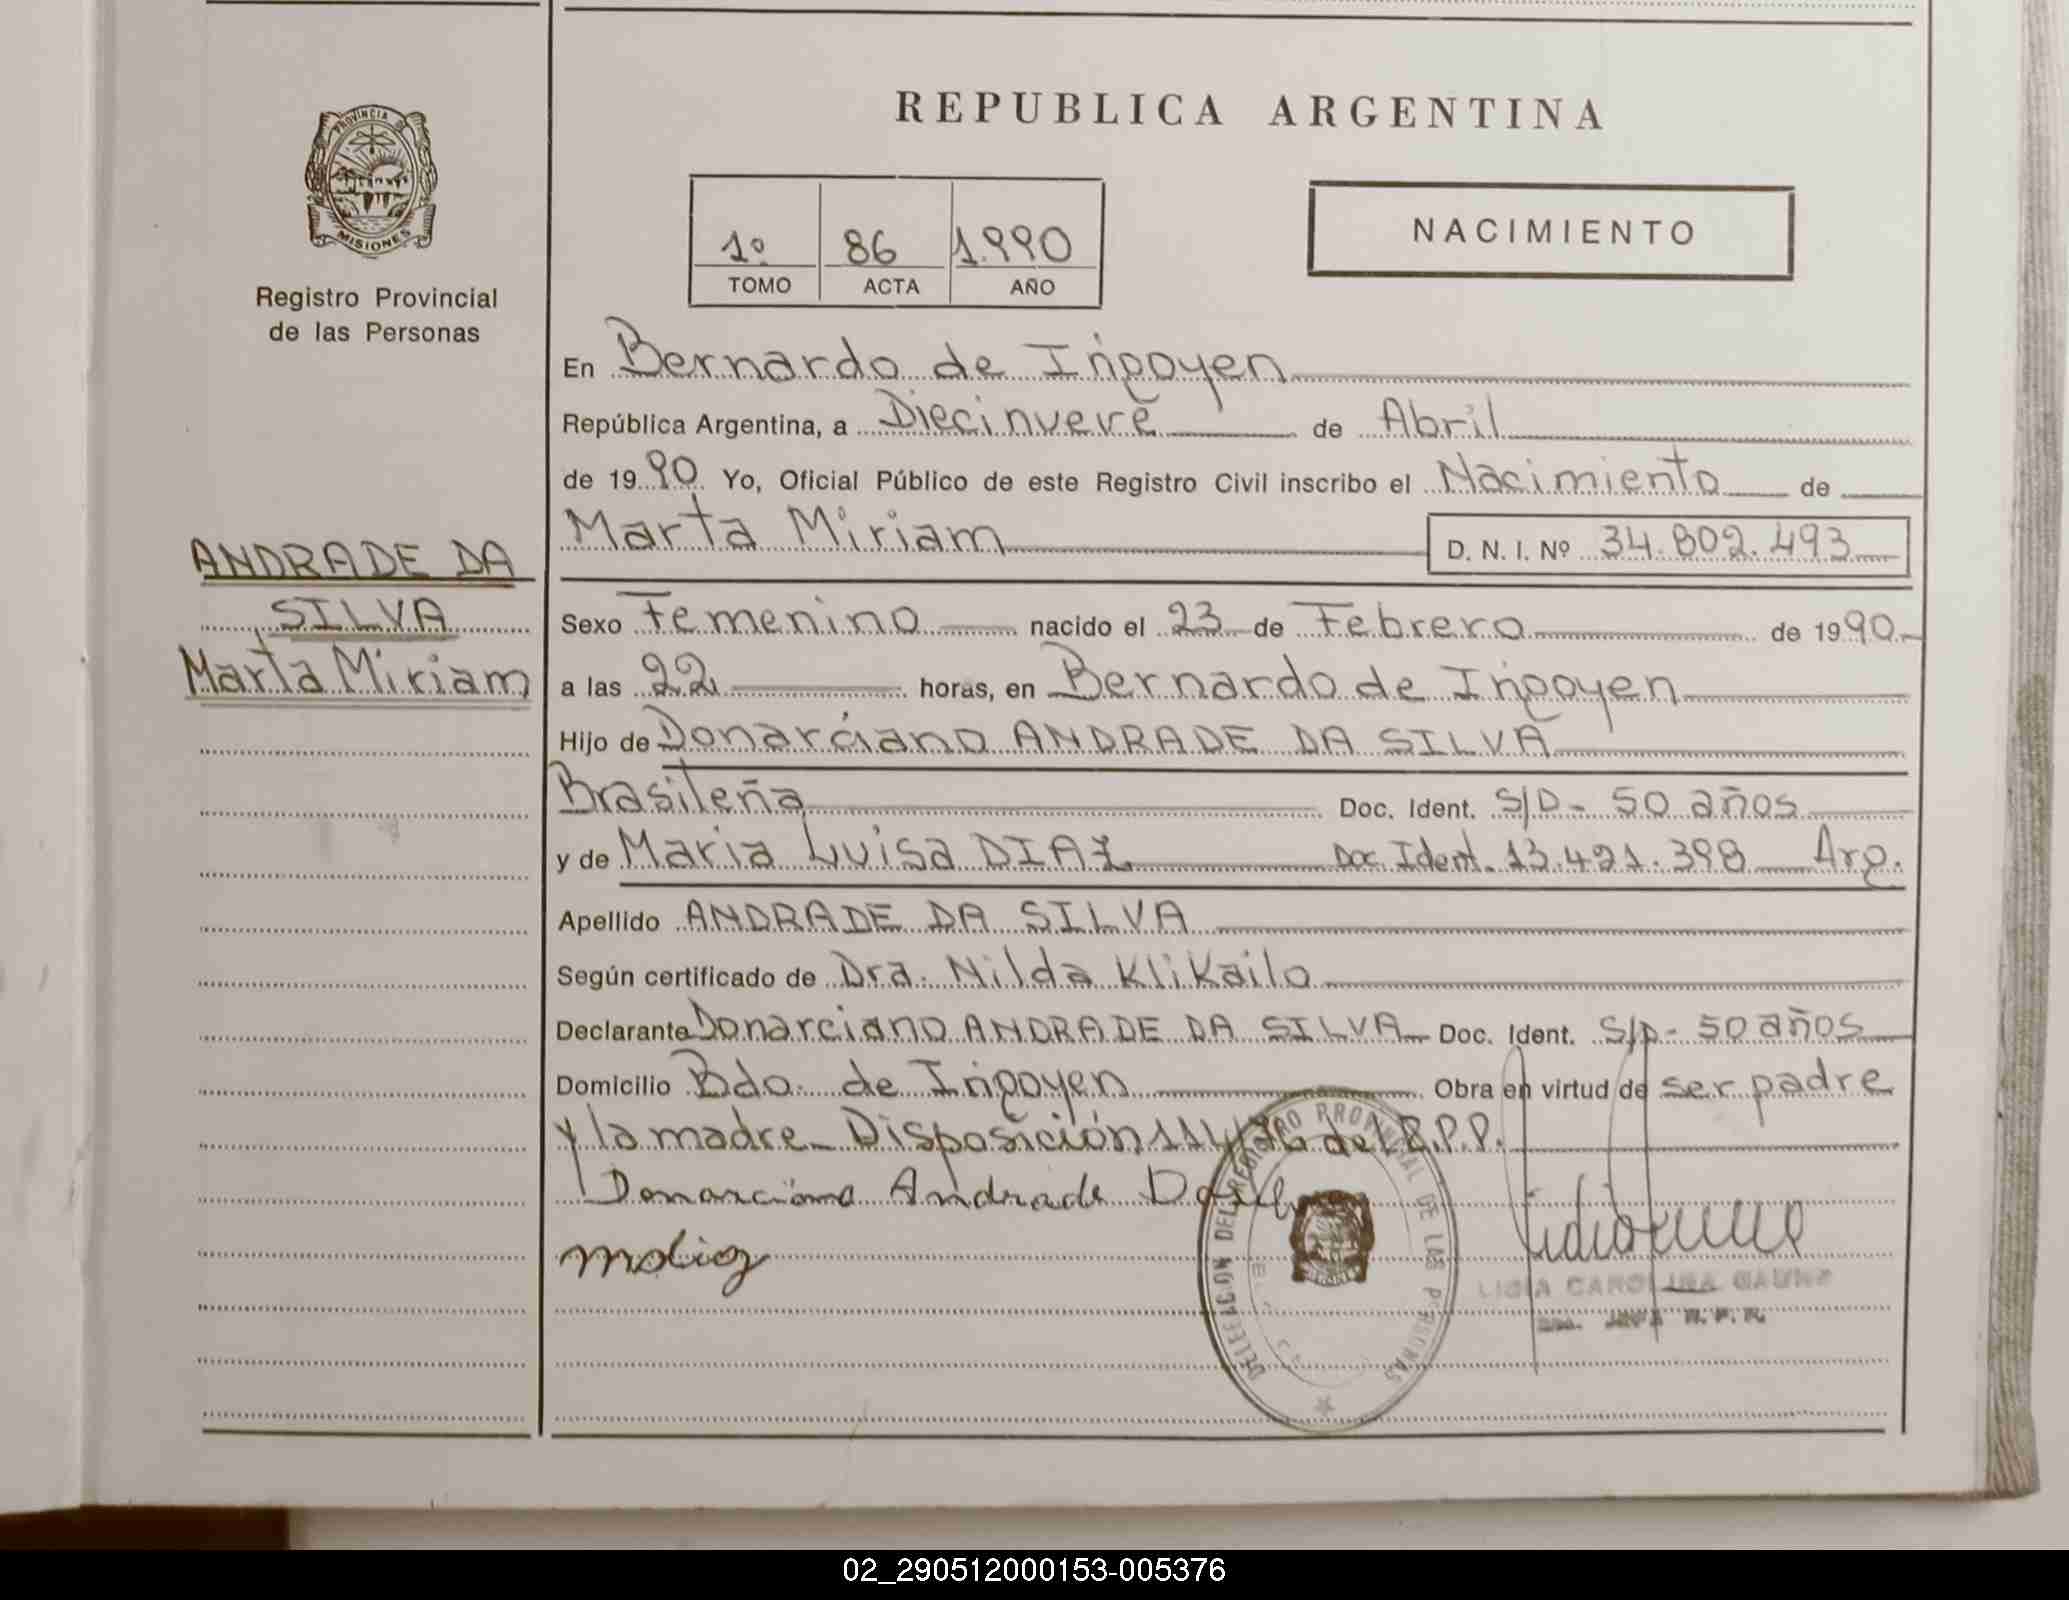 REPUBLICA ARGENTINA
PROVINCIA DE
MISIONES
Registro Provincial
de las Personas
1º 86 1.990
TOMO ACTA AÑO
NACIMIENTO
En Bernardo de Irigoyen
República Argentina, a Diecinueve de Abril
de 1990 Yo, Oficial Público de este Registro Civil inscribo el Nacimiento de
Marta Miriam D. N. I. Nº 34.802.493
ANDRADE DA
SILVA
Marta Miriam
Sexo Femenino nacido el 23 de Febrero de 1990
a las 22 horas, en Bernardo de Irigoyen
Hijo de Donarciano ANDRADE DA SILVA
Brasileña Doc. Ident. S/D- 50 años
y de Maria Luisa DIAZ Doc. Ident. 13.421.398 Arg.
Apellido ANDRADE DA SILVA
Según certificado de Dra. Nilda Klikailo
Declarante Donarciano ANDRADE DA SILVA Doc. Ident. S/D- 50 años
Domicilio Bdo. de Irigoyen Obra en virtud de ser padre
y la madre - Disposición 114/76 del R.P.P.
Donarciano Andrade Da
DELEGACION DEL REGISTRO PROVINCIAL DE LAS PERSONAS
LIGIA CAROLINA
R.P.P.
02_290512000153-005376